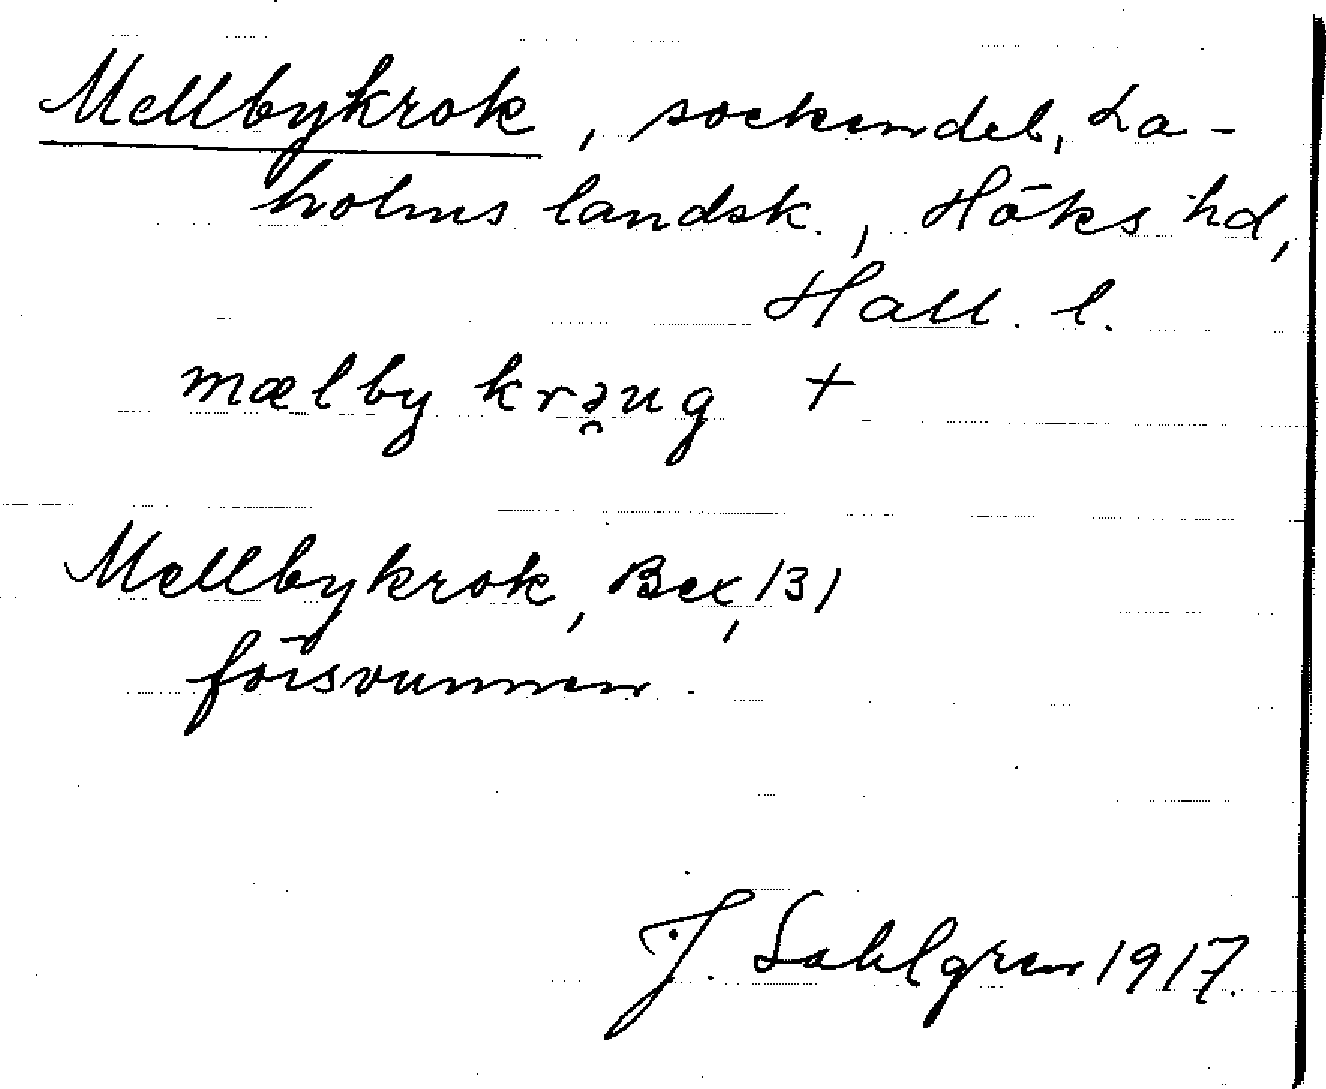 Mellbykrok, sockendel, La-
holms landsk., Höks hd,
Hall. l.
mælby krə̯ug +
Mellbykrok, Bex, 131
försvunnen.
J. Sahlgren 1917.